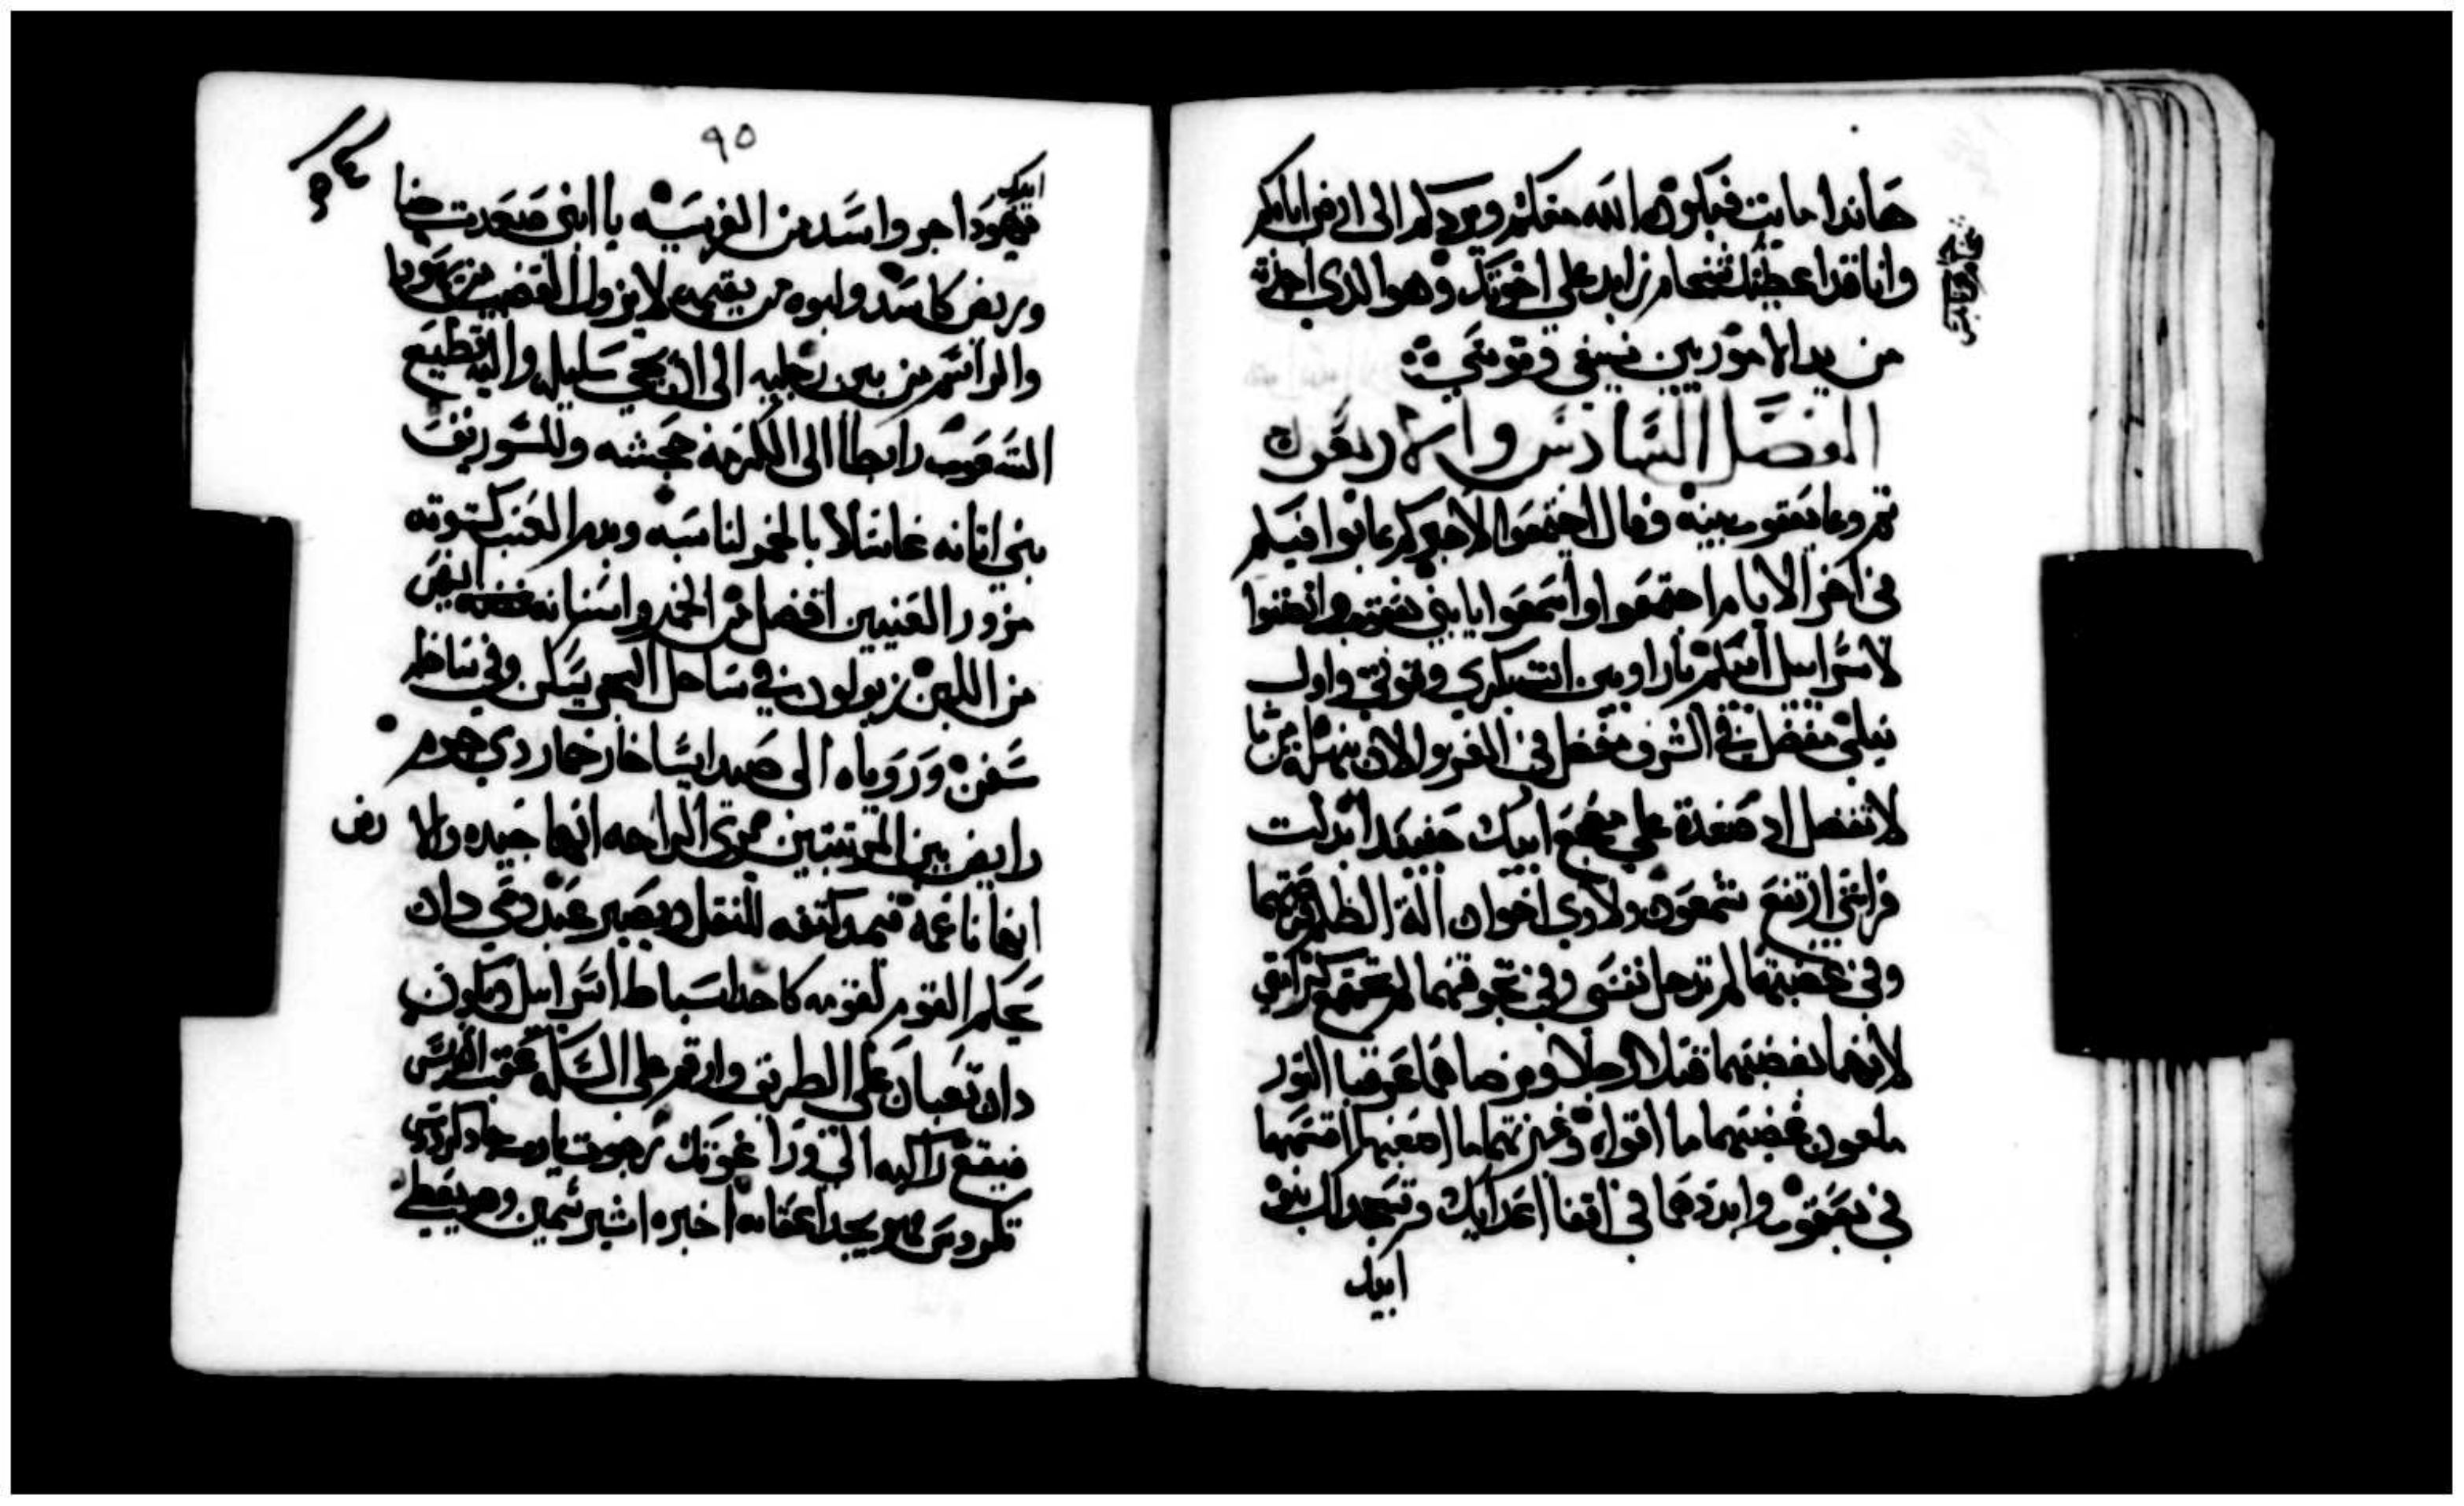 هاندا مايت فيكون الله معكم ويردكم الى ارض ابايكم
وانا قد اعطيتك شخما من زايد علي اخوتك وهو الدي اخدته
من يد الاموريين بسيفي وقوسي
الفصل السادس والاربعون
ثم دعا يعقوب بنيه وقال اجتمعوا لاخبركم بما يوافيكم
في اخر الايام اجتمعوا واسمعوا يا بني يعقوب وانصتوا
لاسراييل ابيكم يا راوبين انت بكري وقوتي واول
نيلي مفضل في الشرف مفضل في العز والان ينهل من ما
لا تفضل اد صعدة علي مضجع ابيك حقيقد ابدلت
فراشي ارتفع شمعون ولاوي اخوان الة الظلم
وفي عصبتهما لم تدخل نفسي وفي جوقهما لم كرامتي
لانهما بغضبهما قتلا رجلا وبرضاهما عرقبا التور
ملعون غضبهما ما اقواه وغيرتهما ما اصعبها اقسمهما
في يعقوب وابددهما في اقفا اعدايك وتسجد لك بنو
ابيك
٩٥
ابيك
يهودا جرو اسد من الفريسه يا ابني صعدت جثا
وربض كاسد ولبوه من يقيمه لا يزول القضيب من يهودا
والراسم من بين رجليه الى ان يجي سليله واليه تطيع
الشعوب رابطا الى الكرمة جحشه وللسوريق
بني اتانه غاسلا بالخمر لباسه وبدم العنب كسوته
مزور العنيين افضل من الخمر واسنانه ابيض
من اللبن زبولون في ساحل البحر يسكن وفي ساحل
سفن وزوياه الى صيدا يساخار خمار دي جرم
رابض بين المرتبتين فرى الراحه انها جيده والارض
انها ناعمة فيمد كتفه للنقل ويصير عبد دمي دان
يحكم القوم لقومه كاحد اسباط اسراييل ويكون
دان تعبان علي الطريق وارقم علي السكه عقب الفرس
فيقع راكبه الى ورا غوتك رجوت يارب جاد كردوس
تكردس وهو يجد اعقابه خبزه اشير سمين وهو يعطي